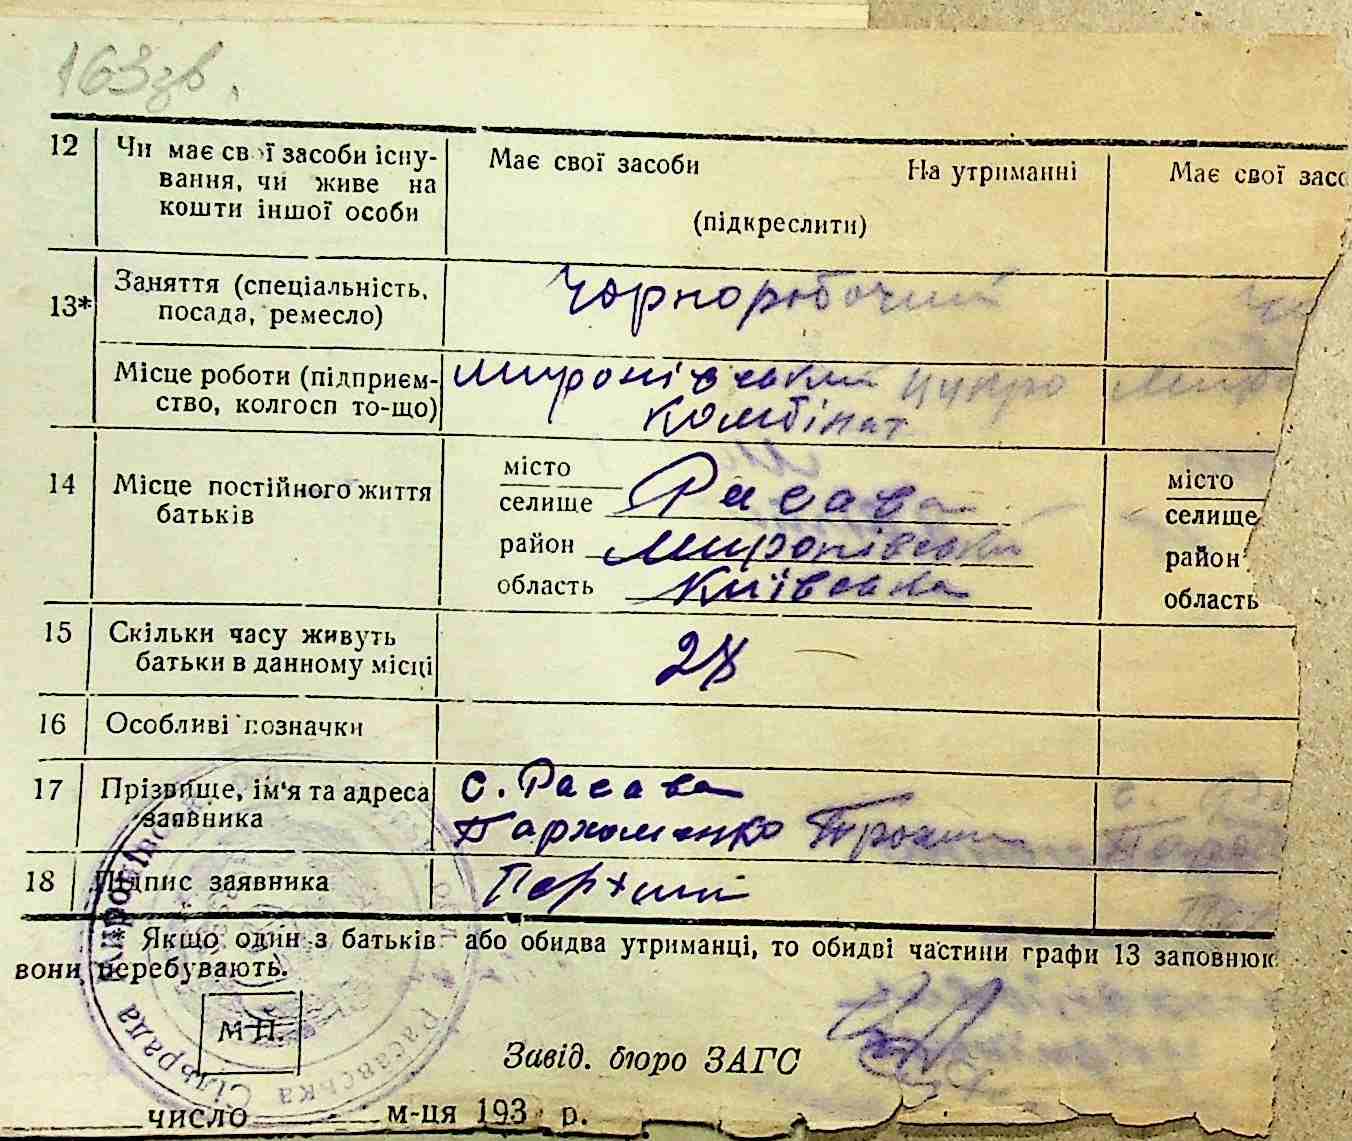 163 зв.
12 Чи має свої засоби існу- Має свої засоби На утриманні Має свої засо
вання, чи живе на
кошти іншої особи (підкреслити)
13* Заняття (спеціальність, Чорноробочий
посада, ремесло)
Місце роботи (підприєм- Миронівський цукро
ство, колгосп то-що) комбінат
14 Місце постійного життя місто місто
батьків селище Расава селище
район Миронівський район
область Київська область
15 Скільки часу живуть 27
батьки в данному місці
16 Особливі позначки
17 Прізвище, ім'я та адреса с. Расава
заявника Пархоменко
18 Підпис заявника
* Якщо один з батьків або обидва утриманці, то обидві частини графи 13 заповнюю
вони перебувають.
М П.
Расавська Сільрада
Завід. бюро ЗАГС
число м-ця 193 р.